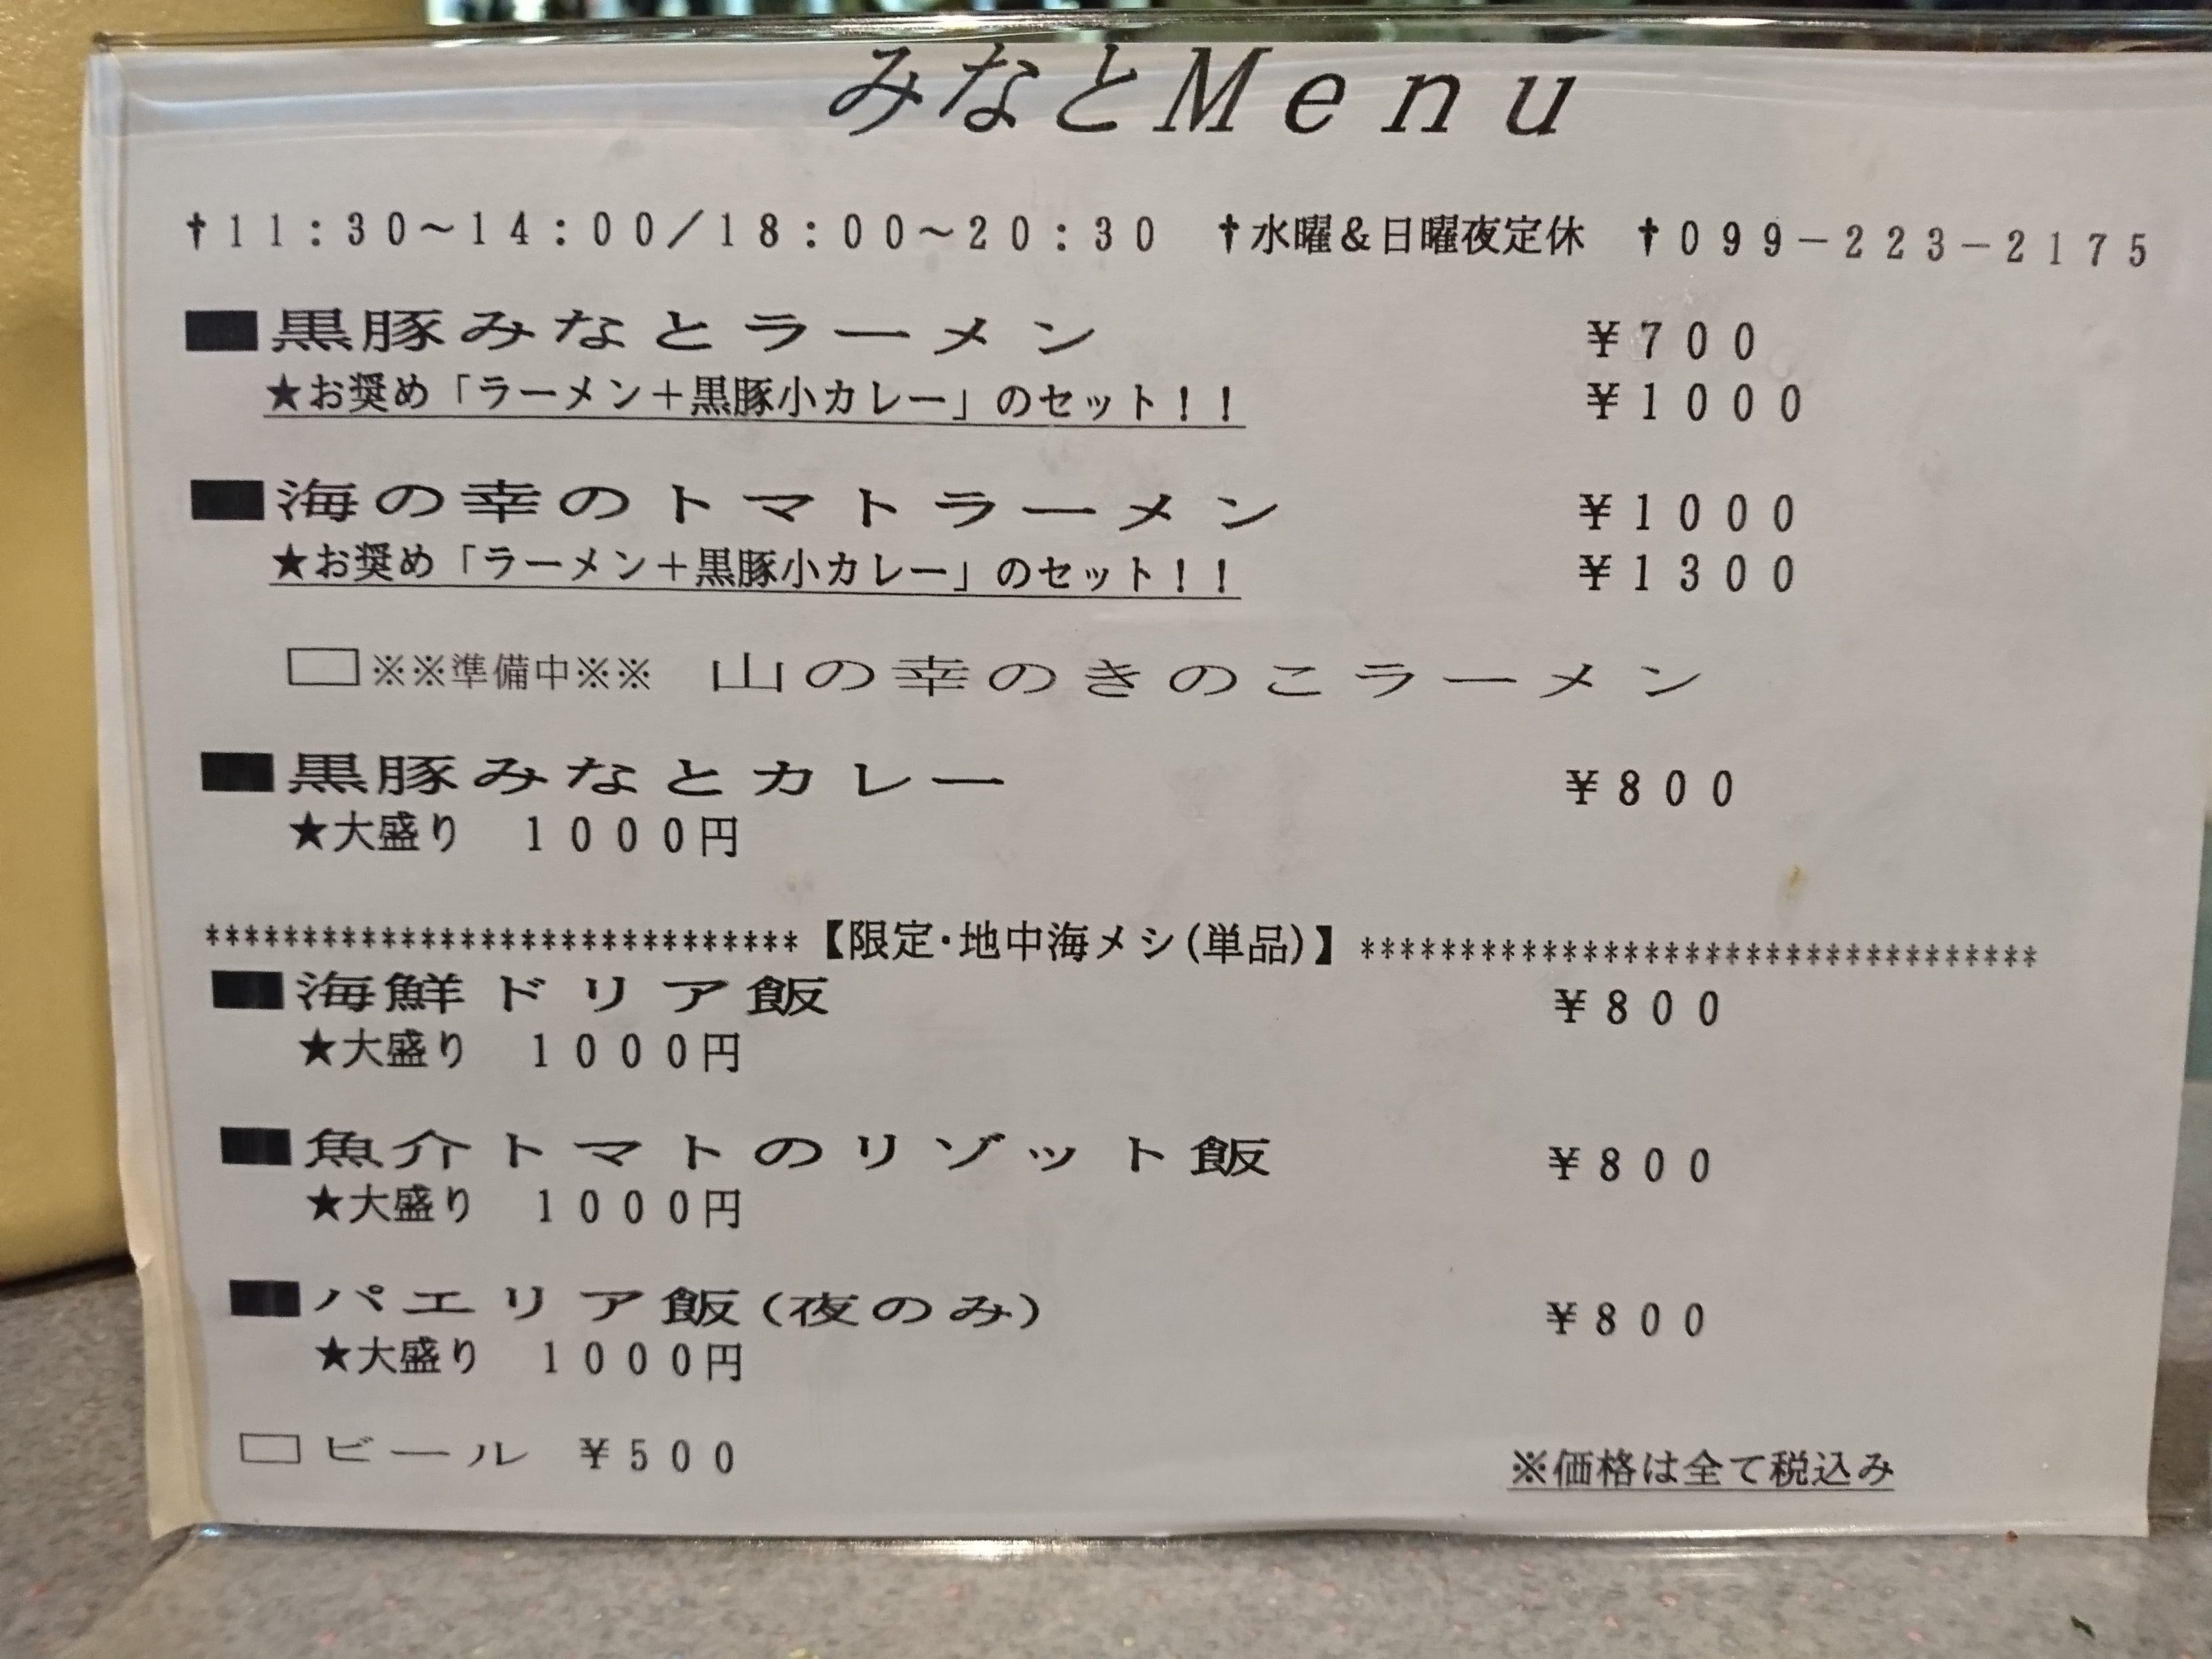 みなとMenu
✝11:30~14:00/18:00~20:30 ✝水曜&日曜夜定休 ✝099-223-2175
■黒豚みなとラーメン ¥700
★お奨め「ラーメン+黒豚小カレー」のセット!! ¥1000
■海の幸のトマトラーメン ¥1000
★お奨め「ラーメン+黒豚小カレー」のセット!! ¥1300
□※※準備中※※ 山の幸のきのこラーメン
■黒豚みなとカレー ¥800
★大盛り 1000円
******************************【限定・地中海メシ(単品)】**********************************
■海鮮ドリア飯 ¥800
★大盛り 1000円
■魚介トマトのリゾット飯 ¥800
★大盛り 1000円
■パエリア飯(夜のみ) ¥800
★大盛り 1000円
□ビール ¥500 ※価格は全て税込み